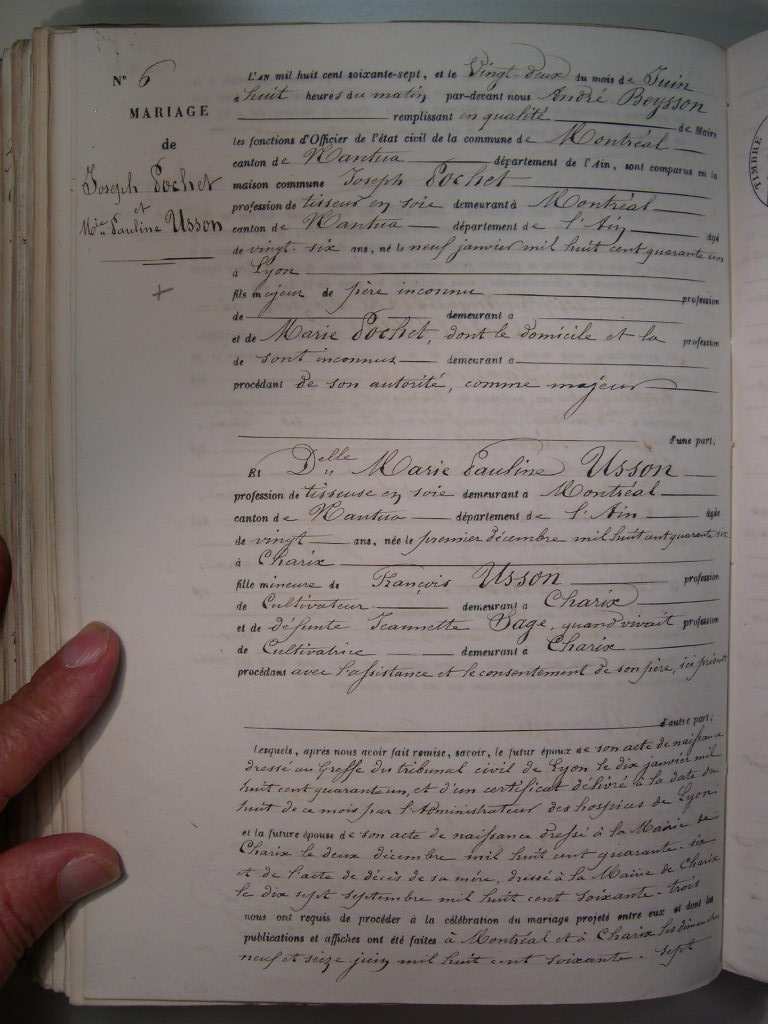 N° 6
MARIAGE
de
Joseph Pochet
et
Mie Pauline Usson
L'AN mil huit cent soixante-sept, et le Vingt-deux du mois de Juin
à huit heures du matin, par-devant nous André Beysson
remplissant en qualité de Maire
les fonctions d'Officier de l'état civil de la commune de Montréal
canton de Nantua département de l'Ain, sont comparus en la
maison commune Joseph Pochet
profession de tisseur en soie demeurant à Montréal
canton de Nantua département de l'Ain âgé
de vingt-six ans, né le neuf janvier mil huit cent quarante un
à Lyon
fils majeur de père inconnu profession
de demeurant à
et de Marie Pochet, dont le domicile et la profession
de sont inconnus demeurant à
procédant de son autorité, comme majeur
d'une part.
Et Delle Marie Pauline Usson
profession de tisseuse en soie demeurant à Montréal
canton de Nantua département de l'Ain âgée
de vingt ans, née le premier décembre mil huit cent quarante six
à Charix
fille mineure de François Usson profession
de Cultivateur demeurant à Charix
et de défunte Jeannette Sage, quand vivait profession
de Cultivatrice demeurant à Charix
procédant avec l'assistance et le consentement de son père, ici présent
d'autre part;
Lesquels, après nous avoir fait remise, savoir, le futur époux de son acte de naissance
dressé au Greffe du tribunal civil de Lyon le dix janvier mil
huit cent quarante un, et d'un certificat délivré à la date du
huit de ce mois par l'Administrateur des hospices de Lyon
et la future épouse de son acte de naissance dressé à la Mairie de
Charix le deux décembre mil huit cent quarante-six
et de l'acte de décès de sa mère, dressé à la Mairie de Charix
le dix sept septembre mil huit cent soixante-trois
nous ont requis de procéder à la célébration du mariage projeté entre eux et dont les
publications et affiches ont été faites à Montréal et à Charix les dimanches
neuf et seize juin mil huit cent soixante-sept
TIMBRE